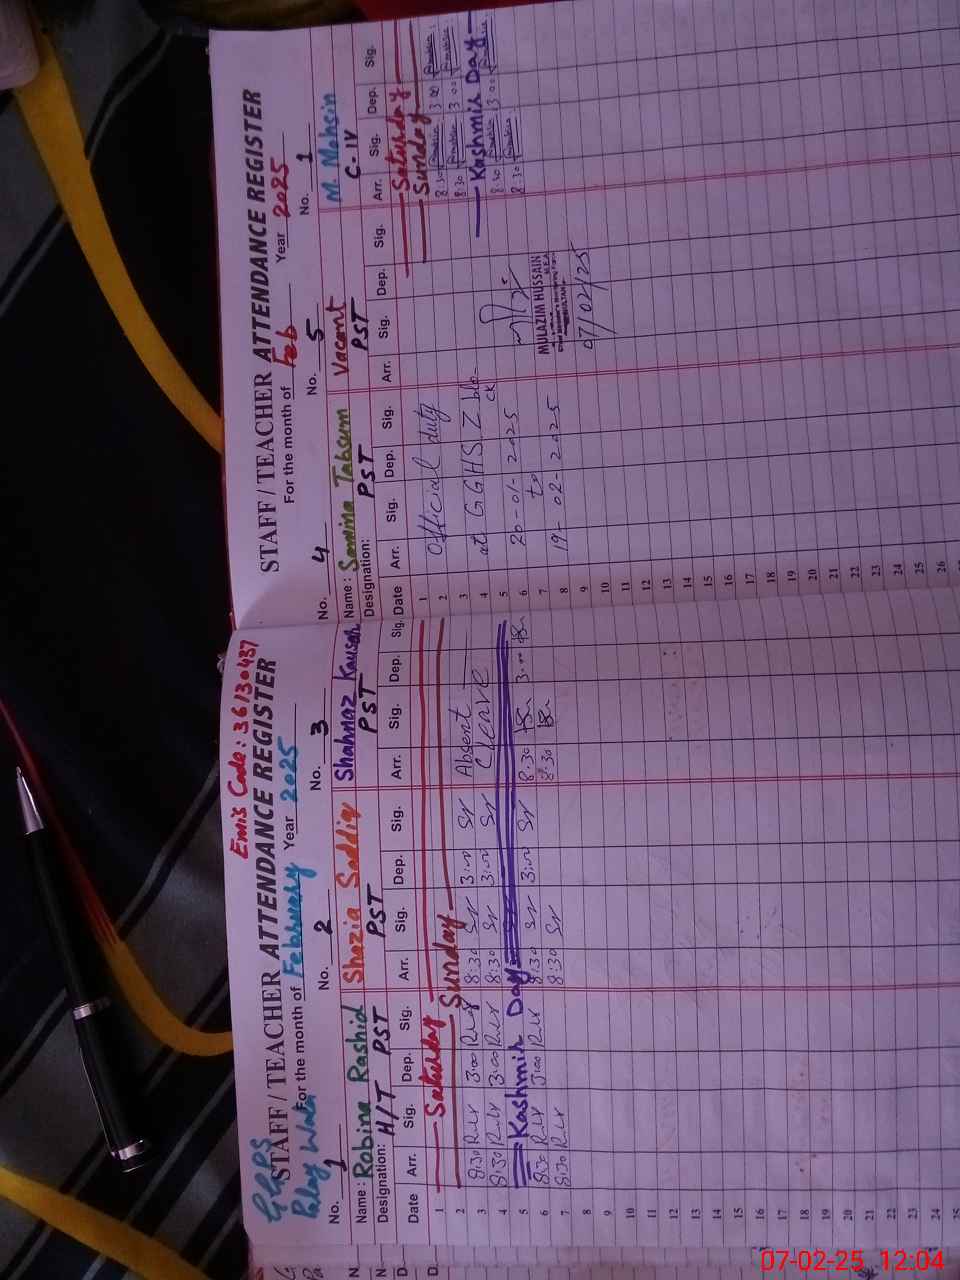 GGPS
Emis Code: 36130437
STAFF / TEACHER ATTENDANCE REGISTER
For the month of February Year 2025
No. 1 No. 2 No. 3
Name: Robina Rashid Shazia Saddiq Shahnaz Kausar
Designation: H/T PST PST PST
Date Arr. Sig. Dep. Sig. Arr. Sig. Dep. Sig. Arr. Sig. Dep. Sig.
1 Saturday
2 Sunday
3 8:30 3:00 8:30 3:00 Absent
4 8:30 3:00 8:30 3:00 Cleave
5 Kashmir Day
6 8:30 3:00 8:30 3:00 8:30 3:00
7 8:30 8:30 8:30
8
9
10
11
12
13
14
15
16
17
18
19
20
21
22
23
24
25
STAFF / TEACHER ATTENDANCE REGISTER
For the month of Feb Year 2025
No. 4 No. 5 No. 1
Name: Samina Tabsum Vacant M. Mohsin
Designation: PST PST C-IV
Date Arr. Sig. Dep. Sig. Arr. Sig. Dep. Sig. Arr. Sig. Dep. Sig.
1 Official duty Saturday
2 Sunday
3 at GGHS Z blo 8:30 3:00
4 ck 8:30 3:00
5 20-01-2025 Kashmir Day
6 to 8:30 3:00
7 19-02-2025 8:30
MULAZIM HUSSAIN
07/02/25
8
9
10
11
12
13
14
15
16
17
18
19
20
21
22
23
24
25
26
07-02-25 12:04